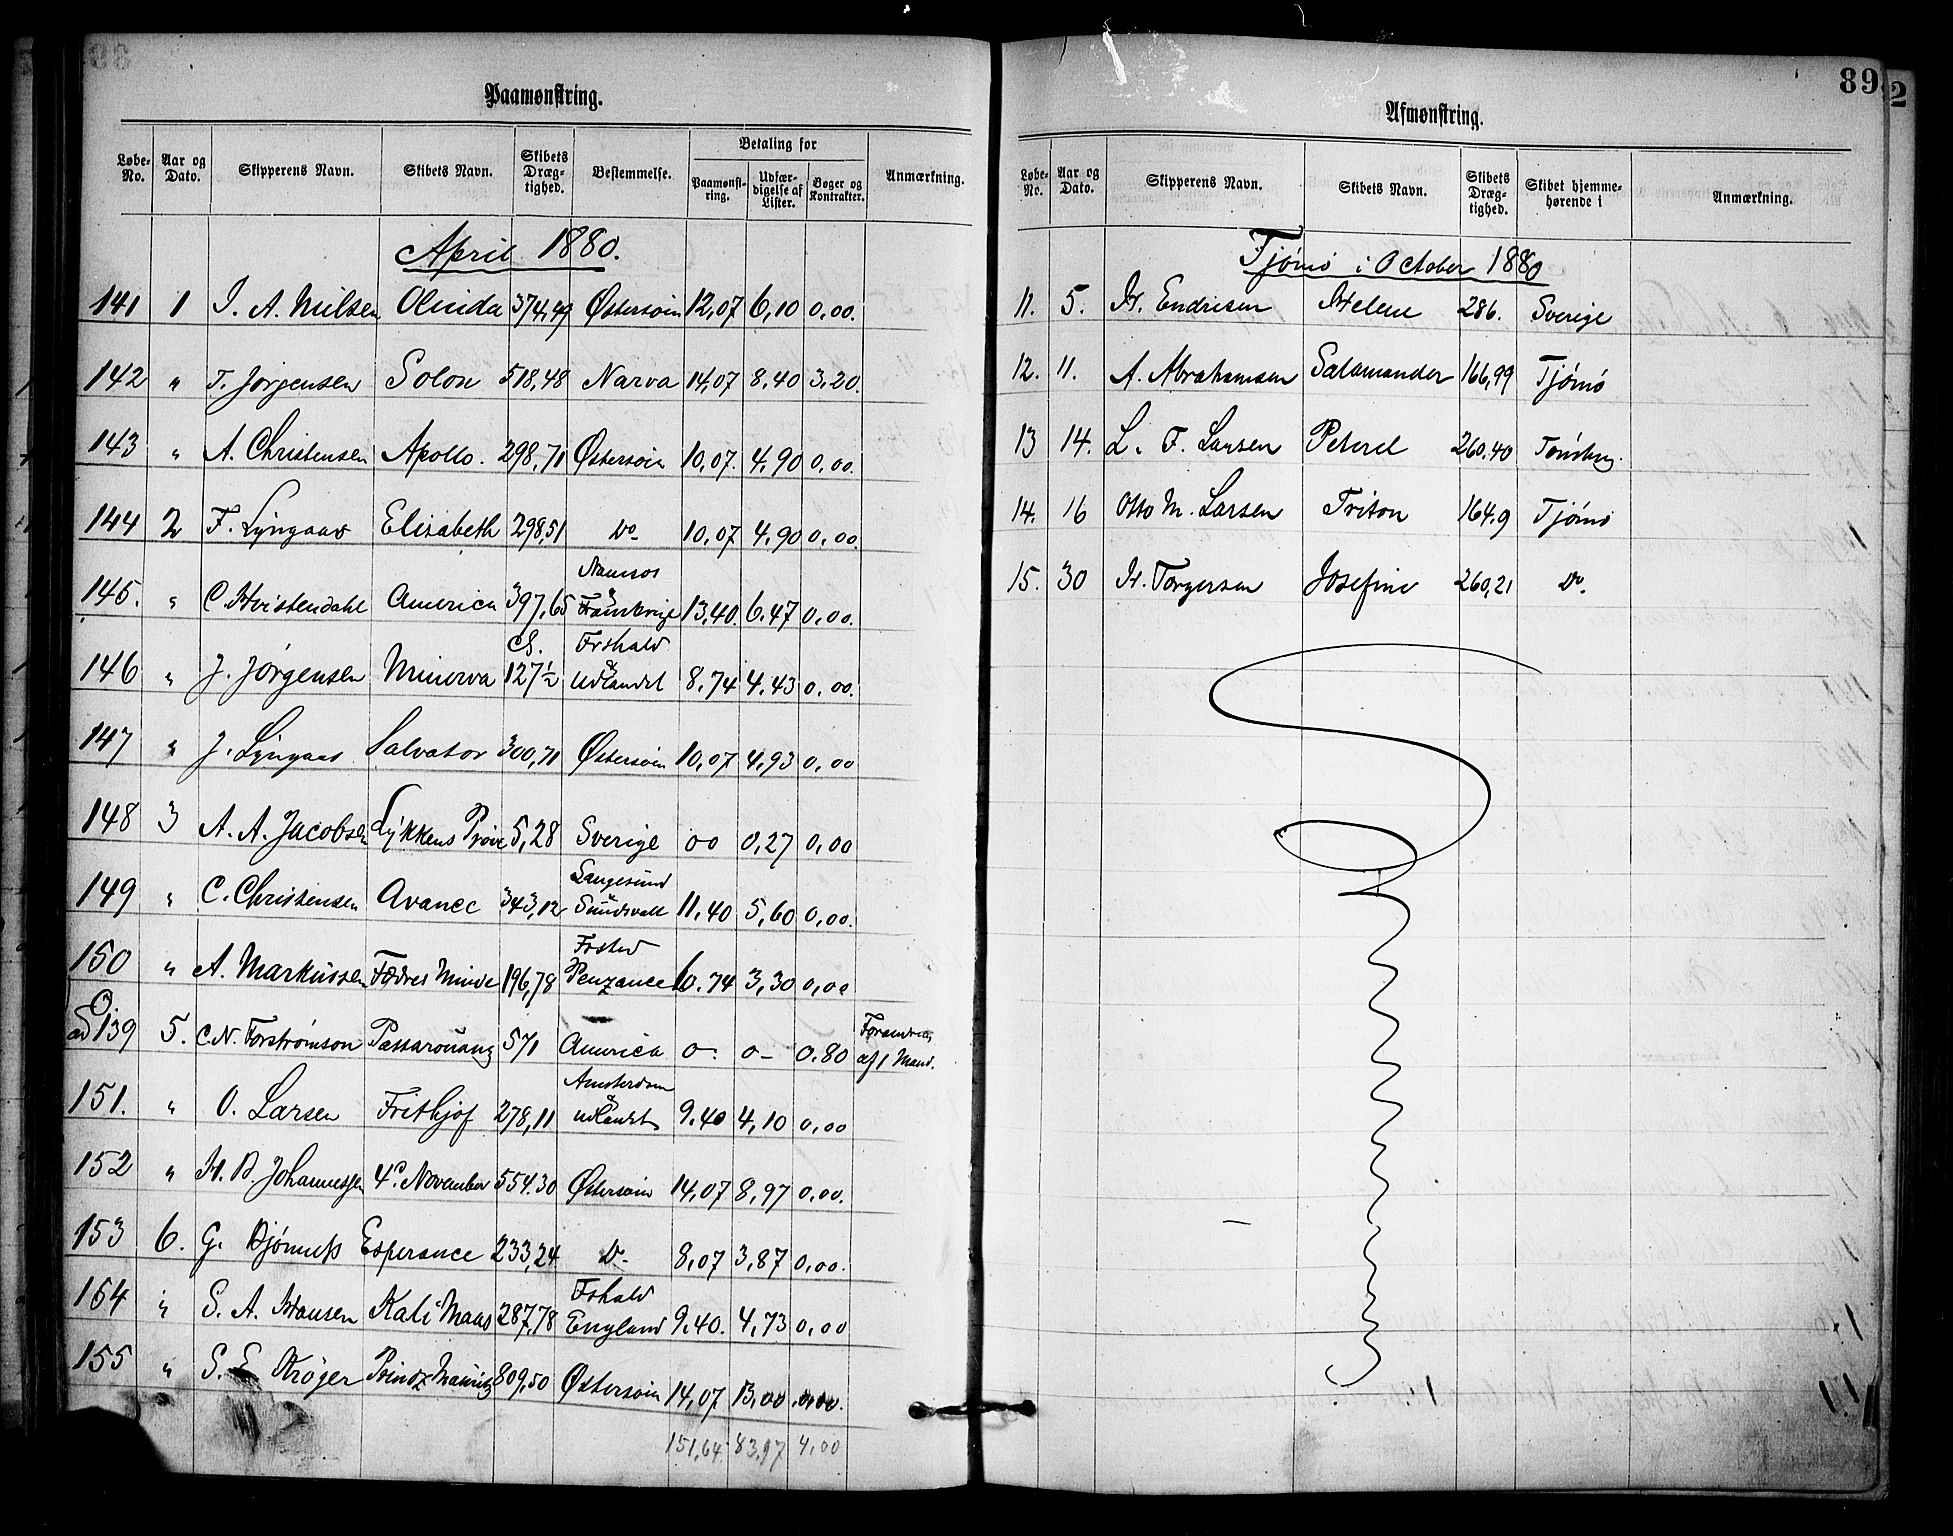 Paamønstring.
Løbe-No. Aar og Dato. Skipperens Navn. Skibets Navn. Skibets Dræg-tighed. Bestemmelse. Betaling for Paamønst-ring. Udfær-digelse af Lister. Bøger og Kontrakter. Anmærkning.
April 1880.
141 1 I. A. Nilsen Olinda 374,49 Østersøin 12,07 6,10 0,00.
142 " T. Jørgensen Solon 518,48 Narva 14,07 8,40 3,20.
143 " A. Christensen Apollo. 298,71 Østersøin 10,07. 4,90 0,00.
144 2 F. Lyngaas Elisabeth 298,51 Do 10,07 4,90 0,00.
Namsos
145. " C. Hvistendahl America 397,65 & Frankrige 13,40. 6.47 0,00.
Cl. Frshald
146 " J. Jørgensen Minerva 127½ & Udlandet 8,74 4,43 0,00.
147 " J. Lyngaas Salvator 300,71 Østersøin 10,07 4,93 0,00
148 3 A. A. Jacobsen Lykkens Prøve 5,28 Sverige 00 0,27 0,00
Langesund
149 " C. Christensen Avance 343,12 & Sundsvall 11,40 5,60 0,00.
Frsted
150 " A. Markussen Fædres Minde 196,78 Penzance 6.74 3,30 0,00
ad 139 5. C. N. Forstrømson Passarouang 571 America 0. 0- 0.80 Forandring
af 1 Mand.
Amsterdam
151. " O. Larsen Frithjof 278,11 & Udlandet 9.40 4,10 0,00
152 " H. B. Johannessen 4de November 554.30 Østersøin 14,07 8,97 0,00.
153 6. G. Bjønness Esperance 233,24 Do. 8,07 3,87 0,00.
Frhald
154 " S. A. Hansen Kali Maas 287,78 England 9,40. 4,73 0,00
155 " S. E Krøger Prindz Mauritz 809,50 Østersøin 14,07 13,00 0,00.
151,64 83,97 4,00
89
2
Afmønstring.
Løbe-No. Aar og Dato. Skipperens Navn. Skibets Navn. Skibets Dræg-tighed. Skibet hjemme-hørende i Anmærkning.
Tjømø i October 1880
11. 5. H. Endresen Helene 286. Sverige
12. 11. A. Abrahamsen Salamander 166,99 Tjømø
13 14. L. F. Larsen Peterel 260.40 Tønsberg.
14. 16 Otto M. Larsen Triton 164.9 Tjømø
15. 30 H. Torgersen Josefine 260,21 Do.